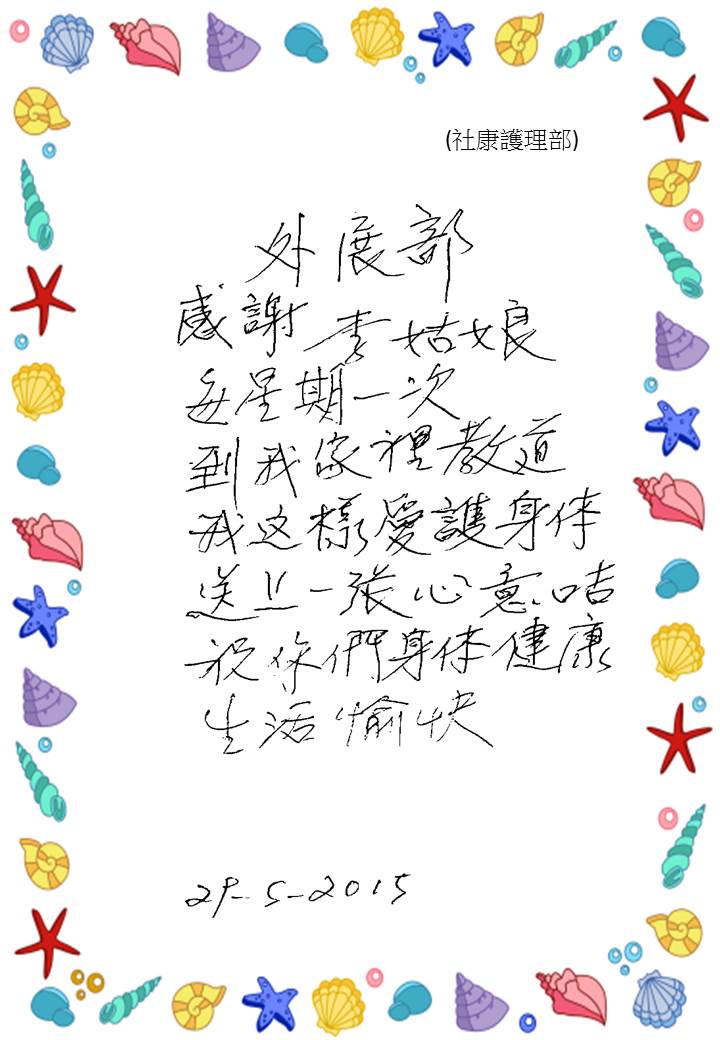 (社康護理部)
外展部
感謝 李姑娘
每星期一次
到我家裡教道
我这樣愛護身体
送上一張心意咭
祝你們身体健康
生活愉快
29-5-2015